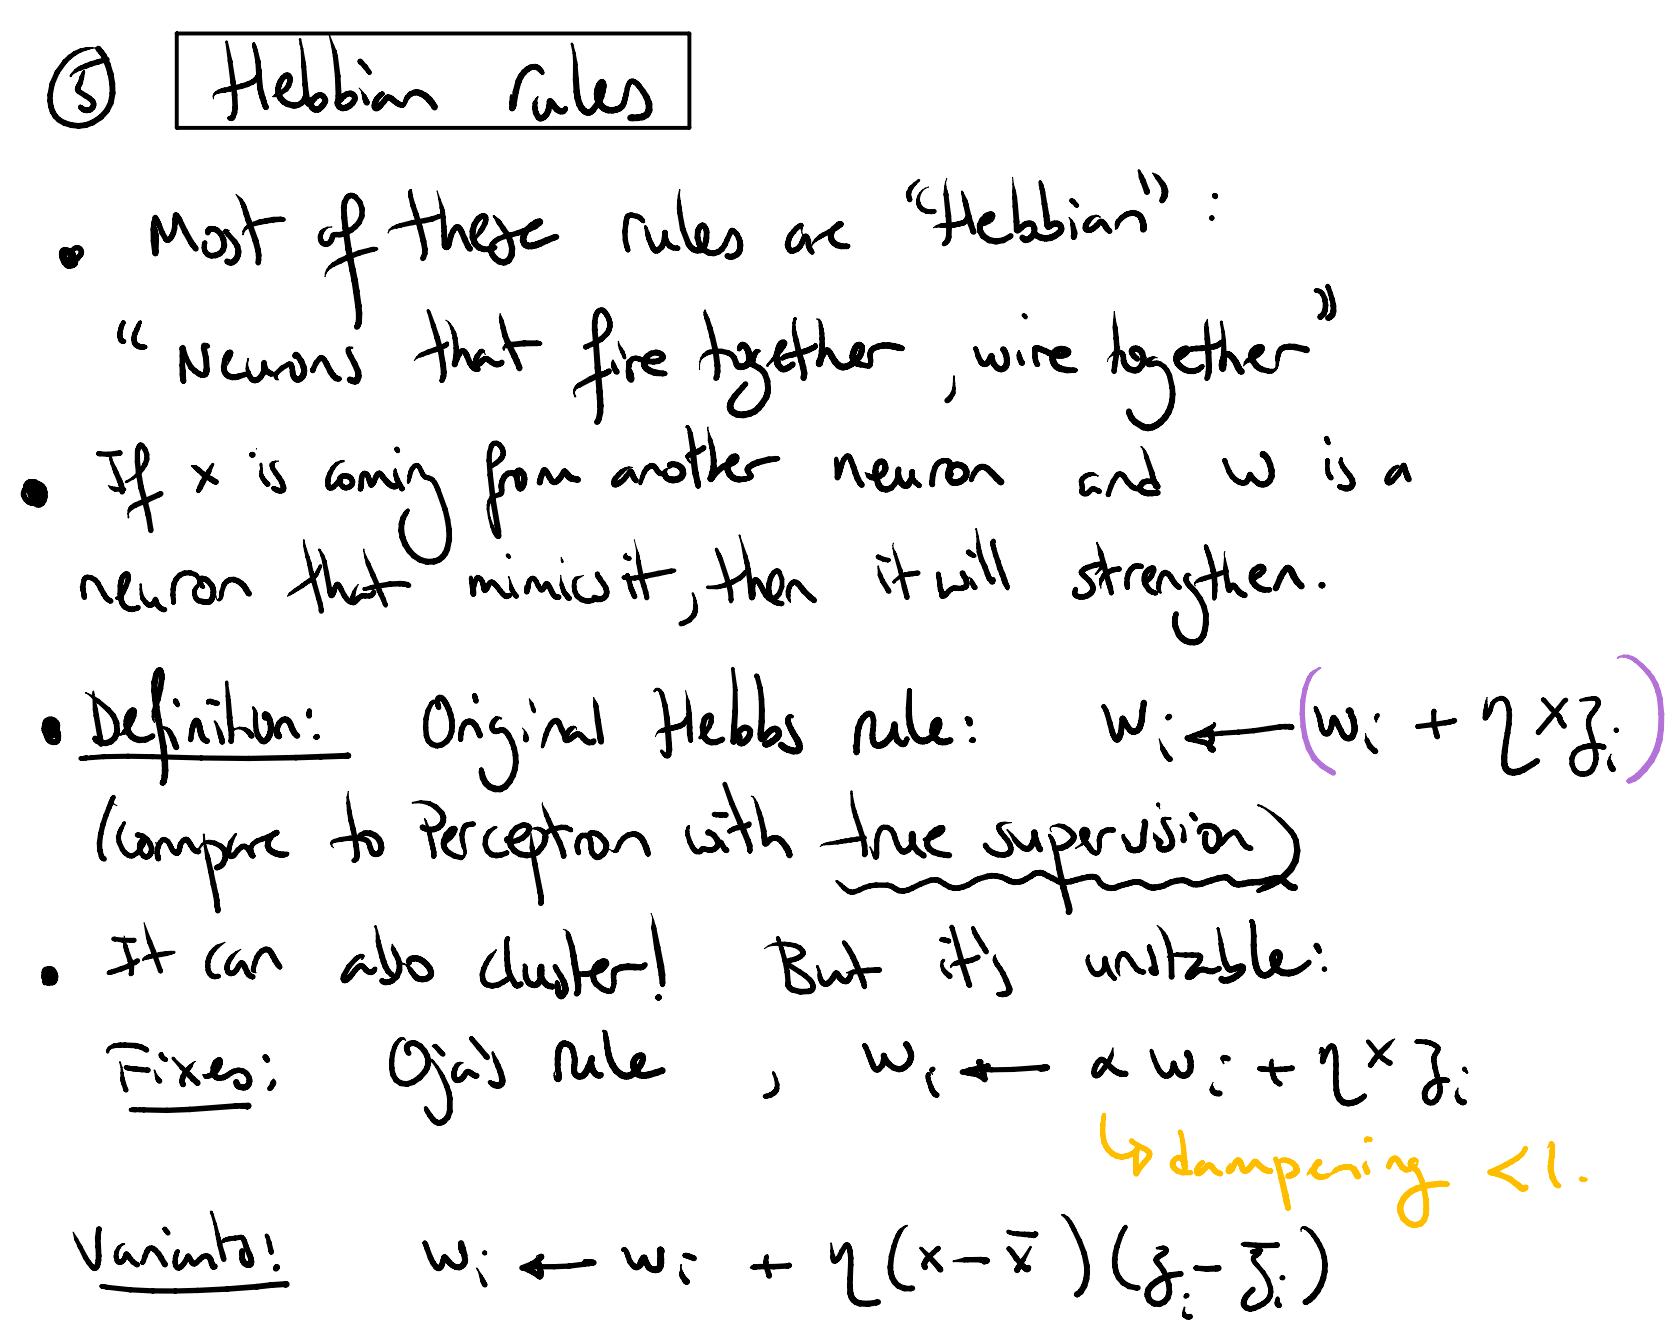 ⑤ Hebbian rules
• Most of these rules are "Hebbian":
"Neurons that fire together, wire together"
• If x is coming from another neuron and w is a
neuron that mimics it, then it will strengthen.
• Definition: Original Hebbs rule: wᵢ ← (wᵢ + η x zᵢ)
(compare to Perceptron with true supervision)
• It can also cluster! But it's unstable:
Fixes: Oja's rule, wᵢ ← α wᵢ + η x zᵢ
↳ dampening < 1.
Variants! wᵢ ← wᵢ + η (x - x̄)(zᵢ - z̄ᵢ)